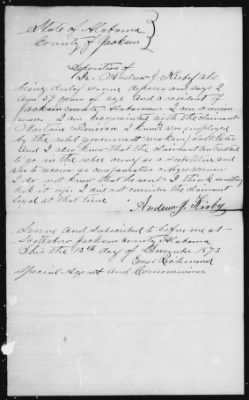 State of Alabama
County of Jackson
Deposition of
Dr. Andrew J. Kirby who
being duly sworn deposes and says I
am 59 years of age and a resident of
Jackson County Alabama. I am a mine
I am acquainted with the claimant
I know was employed
by the rebel government making saltpeter
and I also know that the claimant contracted
to go in the rebel army as a substitute and
also to serve as
I do not know that he went I think something
broke it up. I did not consider the claimant
loyal at that time
Andrew J. Kirby
Sworn and Subscribed to before me at
Scottsboro Jackson County Alabama
this 13th day of December 1873
Richmond
Special Agent and Commissioner